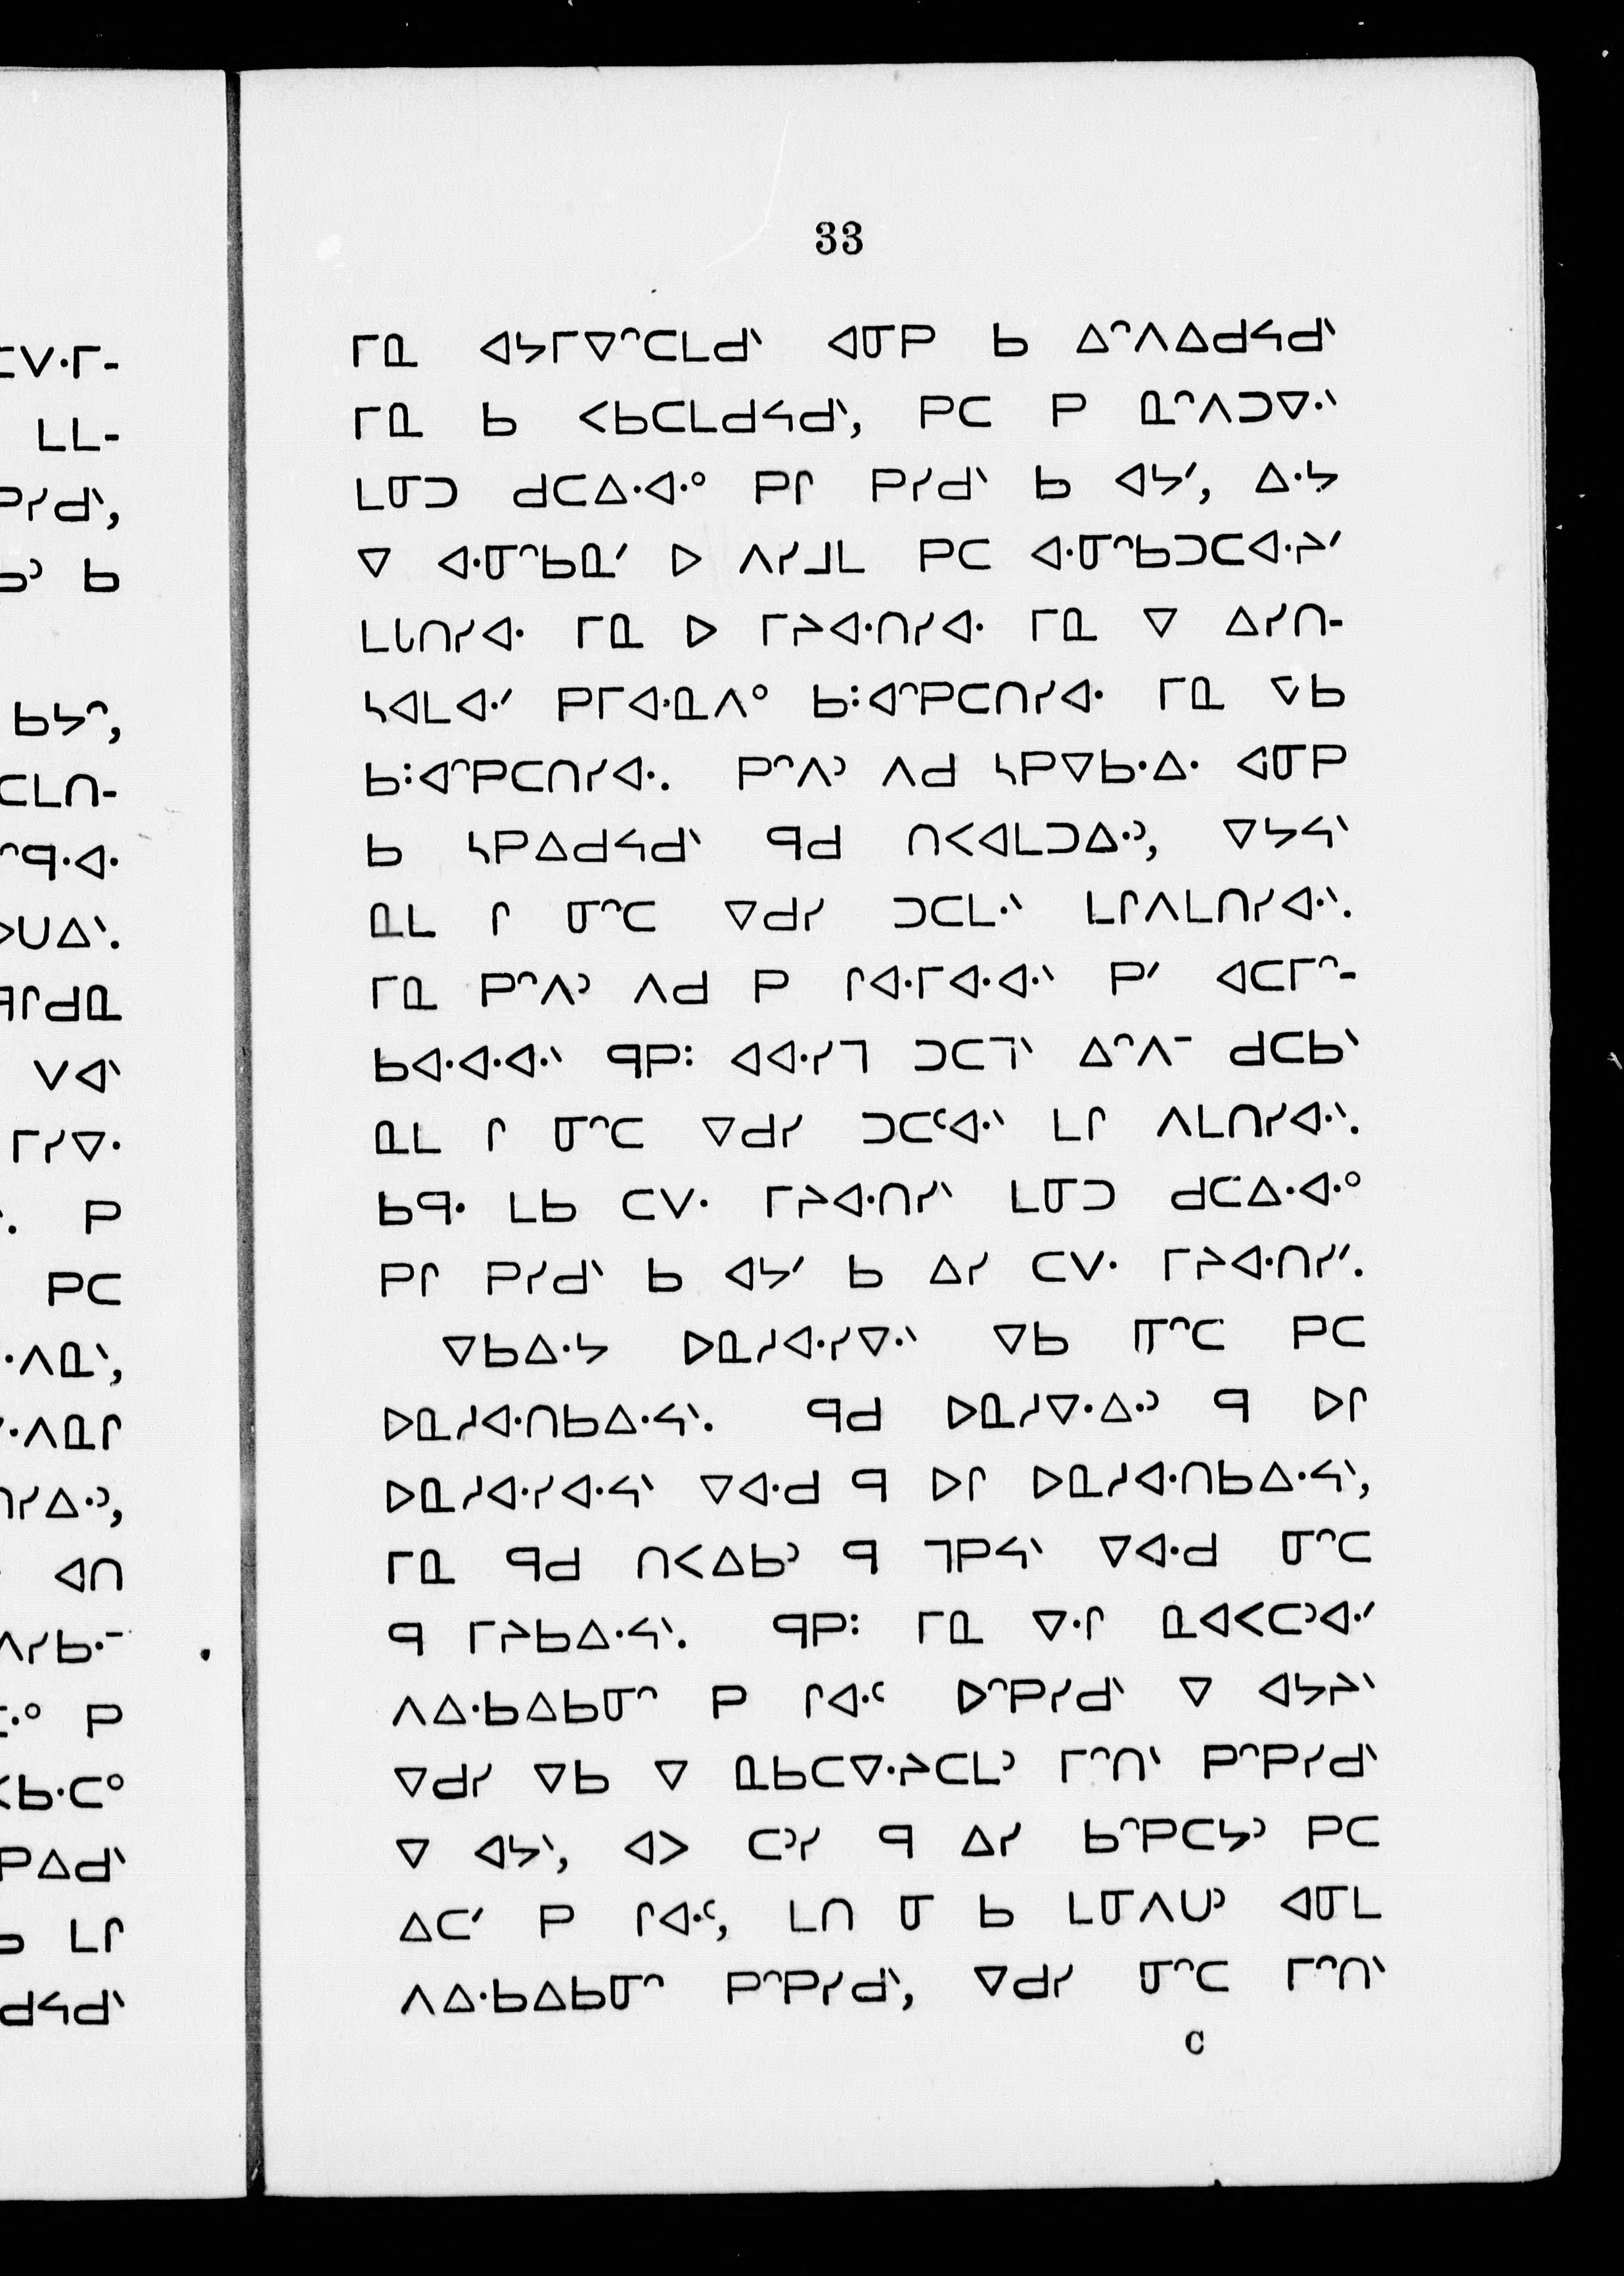 33
ᒥᓇ ᐊᔭᒥᐁᐢᑕᒪᑯᐠ ᐊᓂᑭ ᑲ ᐃᐢᐱᐃᑯᓴᑯᐠ
ᒥᓇ ᑲ ᐸᑲᑕᒪᑯᓴᑯᐠ, ᑭᑕ ᑭ ᓇᐢᐱᑐᐁᐧᐠ
ᒪᓂᑐ ᑯᑕᐃᐧᐊᐧᐤ ᑭᒋ ᑭᓯᑯᐠ ᑲ ᐊᔭᐟ, ᐃᐧᔭ
ᐁ ᐊᐧᓂᐢᑲᓇᐟ ᐅ ᐱᓯᒧᒪ ᑭᑕ ᐊᐧᓂᐢᑲᑐᑕᐊᐧᔨᐟ
ᒪᒐᑎᓯᐊᐧ ᒥᓇ ᐅ ᒥᔨᐊᐧᑎᓯᐊᐧ ᒥᓇ ᐁ ᐃᓯᑎ-
ᓴᐊᒪᐊᐧᐟ ᑭᒥᐊᐧᓇᐱᐤ ᑲ:ᐊᐢᑭᑕᑎᓯᐊᐧ ᒥᓇ ᐁᑲ
ᑲ:ᐊᐢᑭᑕᑎᓯᐊᐧ. ᑭᐢᐱᐣ ᐱᑯ ᓴᑭᐁᑲᐧᐃᐧ ᐊᓂᑭ
ᑲ ᓴᑭᐃᑯᓴᑯᐠ ᑫᑯ ᑎᐸᐊᒪᑐᐃᐧᐣ, ᐁᔭᓴᐠ
ᓇᒪ ᒋ ᓂᐢᑕ ᐁᑯᓯ ᑐᑕᒪᐧᐠ ᒪᒋᐱᒪᑎᓯᐊᐧᐠ.
ᒥᓇ ᑭᐢᐱᐣ ᐱᑯ ᑭ ᒋᐊᐧᒥᐊᐧᐊᐧᐠ ᑭᐟ ᐊᑕᒥᐢ-
ᑲᐊᐧᐊᐧᐊᐧᐠ ᑫᑭ: ᐊᐊᐧᓯᒣ ᑐᑕᒣᐠ ᐃᐢᐱᐨ ᑯᑕᑲᐠ
ᓇᒪ ᒋ ᓂᐢᑕ ᐁᑯᓯ ᑐᑕᑦᐊᐧᐠ ᒪᒋ ᐱᒪᑎᓯᐊᐧᐠ.
ᑲᑫᐧ ᒪᑲ ᑕᐯᐧ ᒥᔨᐊᐧᑎᓯᐠ ᒪᓂᑐ ᑯᑕᐃᐧᐊᐧᐤ
ᑭᒋ ᑭᓯᑯᐠ ᑲ ᐊᔭᐟ ᑲ ᐃᓯ ᑕᐯᐧ ᒥᔨᐊᐧᑎᓯᐟ.
ᐁᑲᐃᐧᔭ ᐅᓇᓱᐊᐧᓯᐁᐧᐠ ᐁᑲ ᓃᐢᑕ ᑭᑕ
ᐅᓇᓱᐊᐧᑎᑲᐃᐧᓴᐠ. ᑫᑯ ᐅᓇᓱᐁᐧᐃᐧᐣ ᑫ ᐅᒋ
ᐅᓇᓱᐊᐧᓯᐊᐧᓴᐠ ᐁᐊᐧᑯ ᑫ ᐅᒋ ᐅᓇᓱᐊᐧᑎᑲᐃᐧᓴᐠ,
ᒥᓇ ᑫᑯ ᑎᐸᐃᑲᐣ ᑫ ᒣᑭᓴᐠ ᐁᐊᐧᑯ ᓂᐢᑕ
ᑫ ᒥᔨᑲᐃᐧᓴᐠ. ᑫᑭ: ᒥᓇ ᐁᐧᒋ ᓇᐊᐸᑕᐣᐊᐧᐟ
ᐱᐃᐧᑲᐃᑲᓂᐢ ᑭ ᒋᐊᐧᑦ ᐅᐢᑭᓯᑯᐠ ᐁ ᐊᔭᔨᐠ
ᐁᑯᓯ ᐁᑲ ᐁ ᓇᑲᑕᐁᐧᔨᑕᒪᐣ ᒥᐢᑎᐠ ᑭᐢᑭᓯᑯᐠ
ᐁ ᐊᔭᐠ, ᐊᐳ ᑕᐣᓯ ᑫ ᐃᓯ ᑲᐢᑭᑕᔭᐣ ᑭᑕ
ᐃᑕᐟ ᑭ ᒋᐊᐧᑦ, ᒪᑎ ᓂ ᑲ ᒪᓂᐱᑌᐣ ᐊᓂᒪ
ᐱᐃᐧᑲᐃᑲᓂᐢ ᑭᐢᑭᓯᑯᐠ, ᐁᑯᓯ ᓂᐢᑕ ᒥᐢᑎᐠ
C